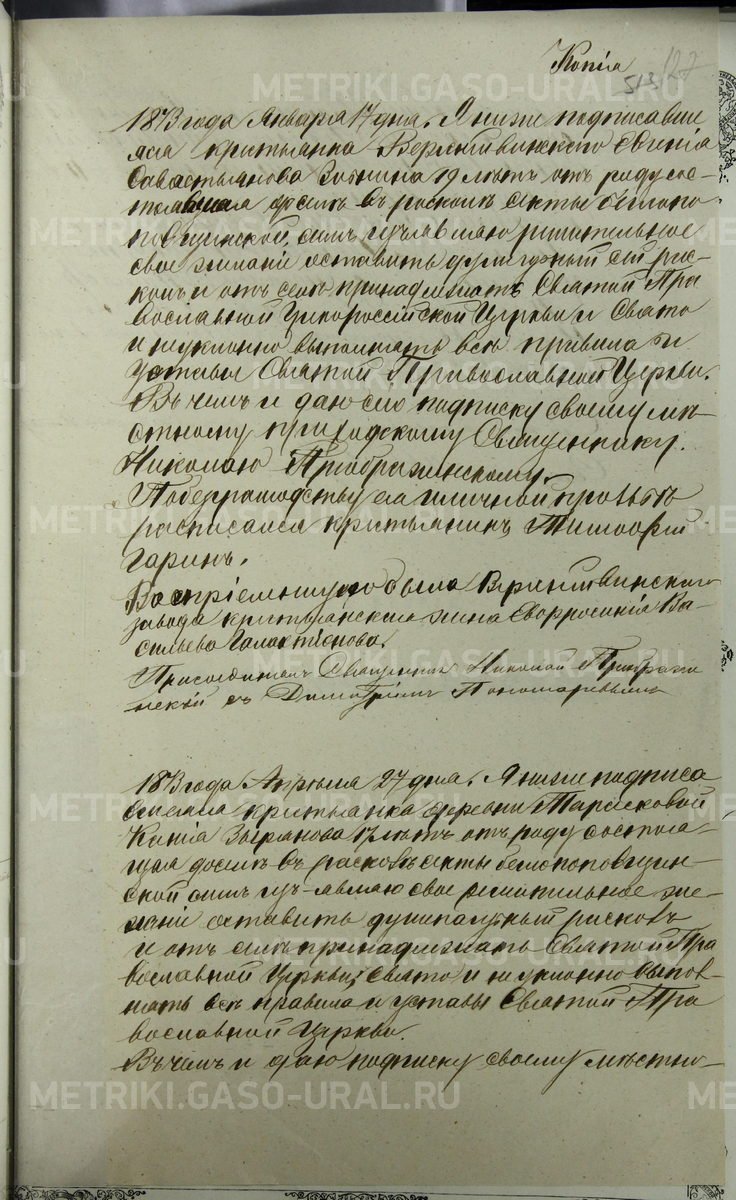 Копія
513
127
1873 года Января 17 дня. Я ниже подписавши
яся крестьянка Верхтвинского Евгенія
Савастьянова Зотнина 19 лѣтъ отъ роду сос-
тоявшая доселѣ въ расколѣ секты бѣглопо-
повщинской, симъ изъявляю решительное
свое желаніе оставить душегубный сей рас-
колъ и отъ селѣ принадлежать Святой Пра
вославной Грекороссійской Церкви и Свято
и неуклонно выполнять всѣ правила и
уставы Святой Православной Церкви.
Въ чемъ и даю сію подписку своему мѣ-
стному приходскому Священнику
Николаю Преображенскому.
По безграмотству ея и личной прозьбѣ
расписался крестьянинъ Тимофей
Гаринъ.
Воспріемницею была
завода крестьянская жена Евфросинія Ва-
сильева Галактіонова.
Присоединялъ Священникъ Николай Преображе
нскій съ Димитріемъ Пономаревымъ
1873 года Апрѣля 27 дня. Я ниже подписа
вшаяся крестьянка деревни Тарасковой
Ксенія Зырянова 17 лѣтъ отъ роду состоя-
щая доселѣ въ расколѣ секты беглопоповщин-
ской симъ изъ-являю свое решительное же-
ланіе оставить душепагубный расколъ
и отъ селѣ принадлежать Святой Пра
вославной Церкви, свято и неуклонно выпол-
нять всѣ правила и уставы Святой Пра
вославной Церкви.
Въ чемъ и даю подписку своему мѣстно-
METRIKI.GASO-URAL.RU